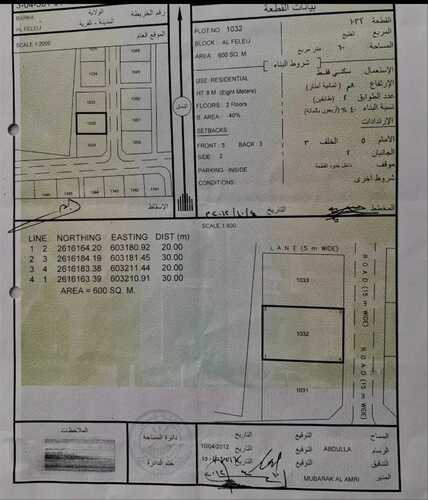 BARKA
AL FELEIJ
SCALE 1:2000
الولاية
المدينة - القرية
رقم الخريطة
الموقع العام
1044
1034
1033
1032
1031
الشمال
الإسقاط
بيانات القطعة
PLOT NO 1032
BLOCK : AL FELEIJ
AREA : 600 SQ.M
القطعة ١٠٣٢
المربع الفليج
المساحة ٦٠٠ متر مربع
شروط البناء
USE: RESIDENTIAL
HT 8 M (Eight Meters)
FLOORS : 2 Floors
B. AREA : 40%
SETBACKS
FRONT : 5 BACK : 3
SIDE : 2
PARKING : INSIDE
CONDITIONS:
الاستعمال سكني فقط
الإرتفاع ٨م (ثمانية أمتار)
عدد الطوابق ٢ (طابقين)
نسبة البناء ٤٠٪ (أربعون بالمائة)
الإرتدادات
الأمام ٥ الخلف ٣
الجانبان ٢
موقف داخل حدود القطعة
شروط أخرى
المخطط
التاريخ
SCALE 1:500
LINE NORTHING EASTING DIST (m)
1 2 2616164.20 603180.92 20.00
2 3 2616184.19 603181.45 30.00
3 4 2616183.38 603211.44 20.00
4 1 2616163.39 603210.91 30.00
AREA = 600 SQ. M.
LANE (5 m WIDE)
1033
1032
1031
ROAD (15 m WIDE)
ROAD (15 m WIDE)
الملاحظات
دائرة المساحة
ختم الدائرة
المساح
الرسام ABDULLA التوقيع التاريخ 10/04/2012
التدقيق التوقيع التاريخ
المدير MUBARAK AL AMRI التوقيع التاريخ